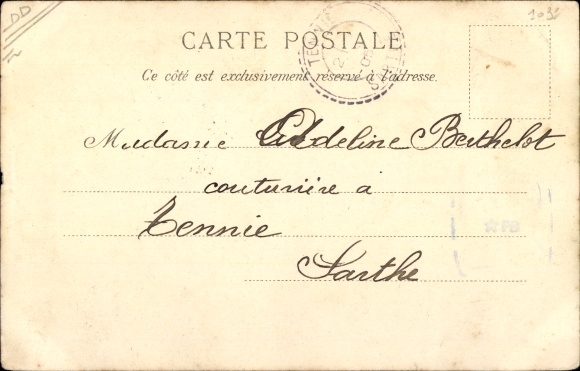 DD
CARTE POSTALE
Ce côté est exclusivement réservé à l'adresse.
Madame Adeline Berthelot
couturière à
Tennie
Sarthe